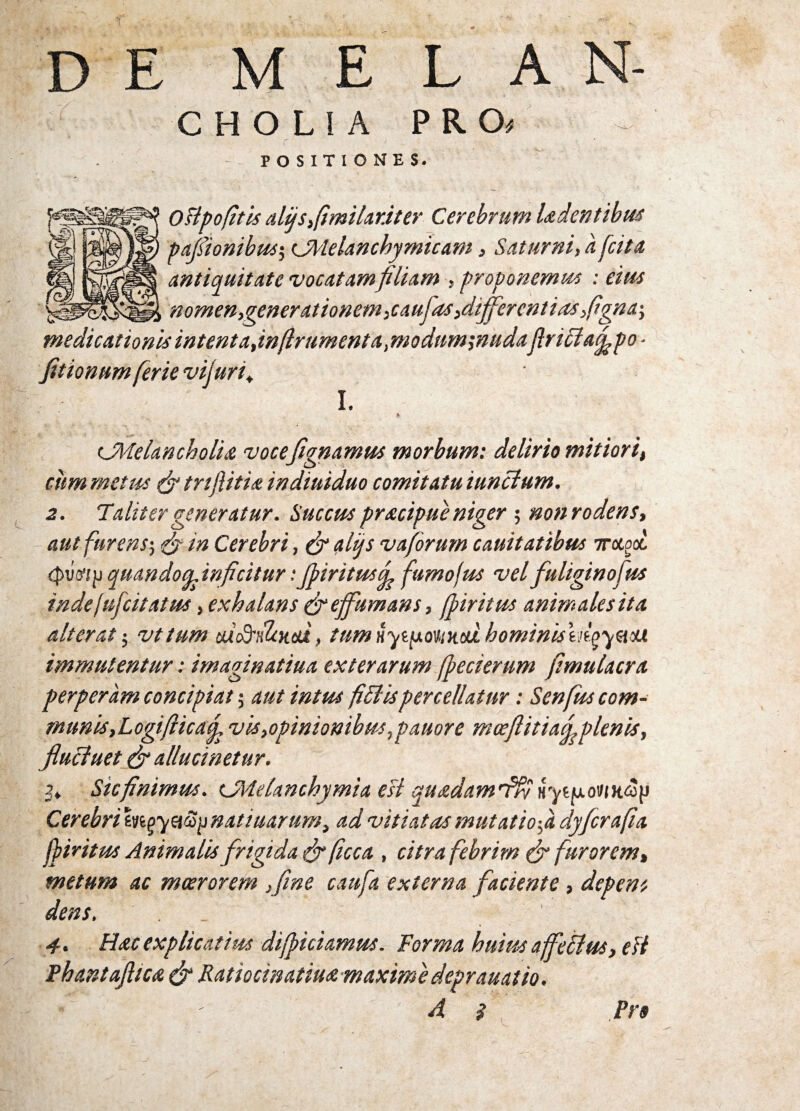 DE MELAN-
CHOLIA PRO-
POSITIONES.
POſtpoſitis alijs, ſimilariter Cerebrum lædentibus
paſsionibus; Melanchymicam, Saturni, à ſcita
antiquitate vocatam filiam, proponemus: eius
nomen, generationem, cauſas, differentias, ſigna;
medicationis intenta, inſtrumenta, modum; nuda ſtrictaq́ue po-
ſitionum ſerie viſuri.
I.
Melancholiæ voce ſignamus morbum: delirio mitiori,
cùm metus & triſtitiæ indiuiduo comitatu iunctum.
2. Taliter generatur. Succus præcipuè niger; non rodens,
aut furens; & in Cerebri, & alijs vaſorum cauitatibus παρὰ
φύσιν quandoq; inficitur: ſpirituſq; fumoſus vel fuliginoſus
inde ſuſcitatus, exhalans & effumans, ſpiritus animales ita
alterat; vt tum αἰσθητικαὶ, tum ἡγεμονικαὶ hominis ἐνέργειαι
immutentur: imaginatiua exterarum ſpecierum ſimulacra
perperàm concipiat; aut intus fictis percellatur: Senſus com-
munis, Logiſticaq; vis, opinionibus, pauore mœſtitiaq; plenis,
fluctuet & allucinetur.
3. Sic finimus. Melanchymia eſt quædam τῶν ἡγεμονικῶν
Cerebri ἐνεργειῶν natiuarum, ad vitiatas mutatio; à dyſcraſia
ſpiritus Animalis frigida & ſicca, citra febrim & furorem,
metum ac mœrorem, ſine cauſa externa faciente, depen-
dens.
4. Hæc explicatius diſpiciamus. Forma huius affectus, eſt
Phantaſticæ & Ratiocinatiuæ maximè deprauatio.
A 3 Pro